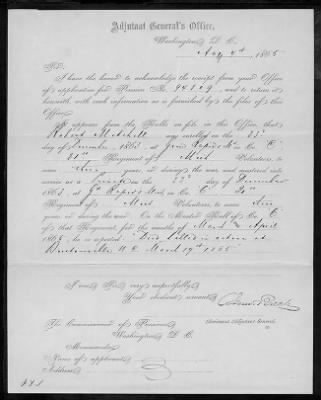 Adjutant General's Office,
Washington, D. C.
Aug 4th, 1865
Sir:
I have the honor to acknowledge the receipt from your Office
of application for Pension No. 94829, and to return it
herewith, with such information as is furnished by the files of this
Office.
It appears from the Rolls on file in this Office, that
Robert Mitchell was enrolled on the 23d
day of December, 1863, at Grand Rapids in Co. E,
21st Regiment of Mich Volunteers, to
serve three years, or during the war, and mustered into
service as a on the day of December
1863, at Gd Rapids Mich, in Co. E
Regiment of Mich Volunteers, to serve
years, or during the war. On the Muster Roll of Co. E
of that Regiment, for the months of March & April
1865, he is reported "Died killed in action at
Bentonville N. C. March 19th 1865"
I am, Sir, very respectfully,
Your obedient servant,
Assistant Adjutant General.
The Commissioner of Pensions,
Washington, D. C.
Memoranda:
Name of applicant,
Address,